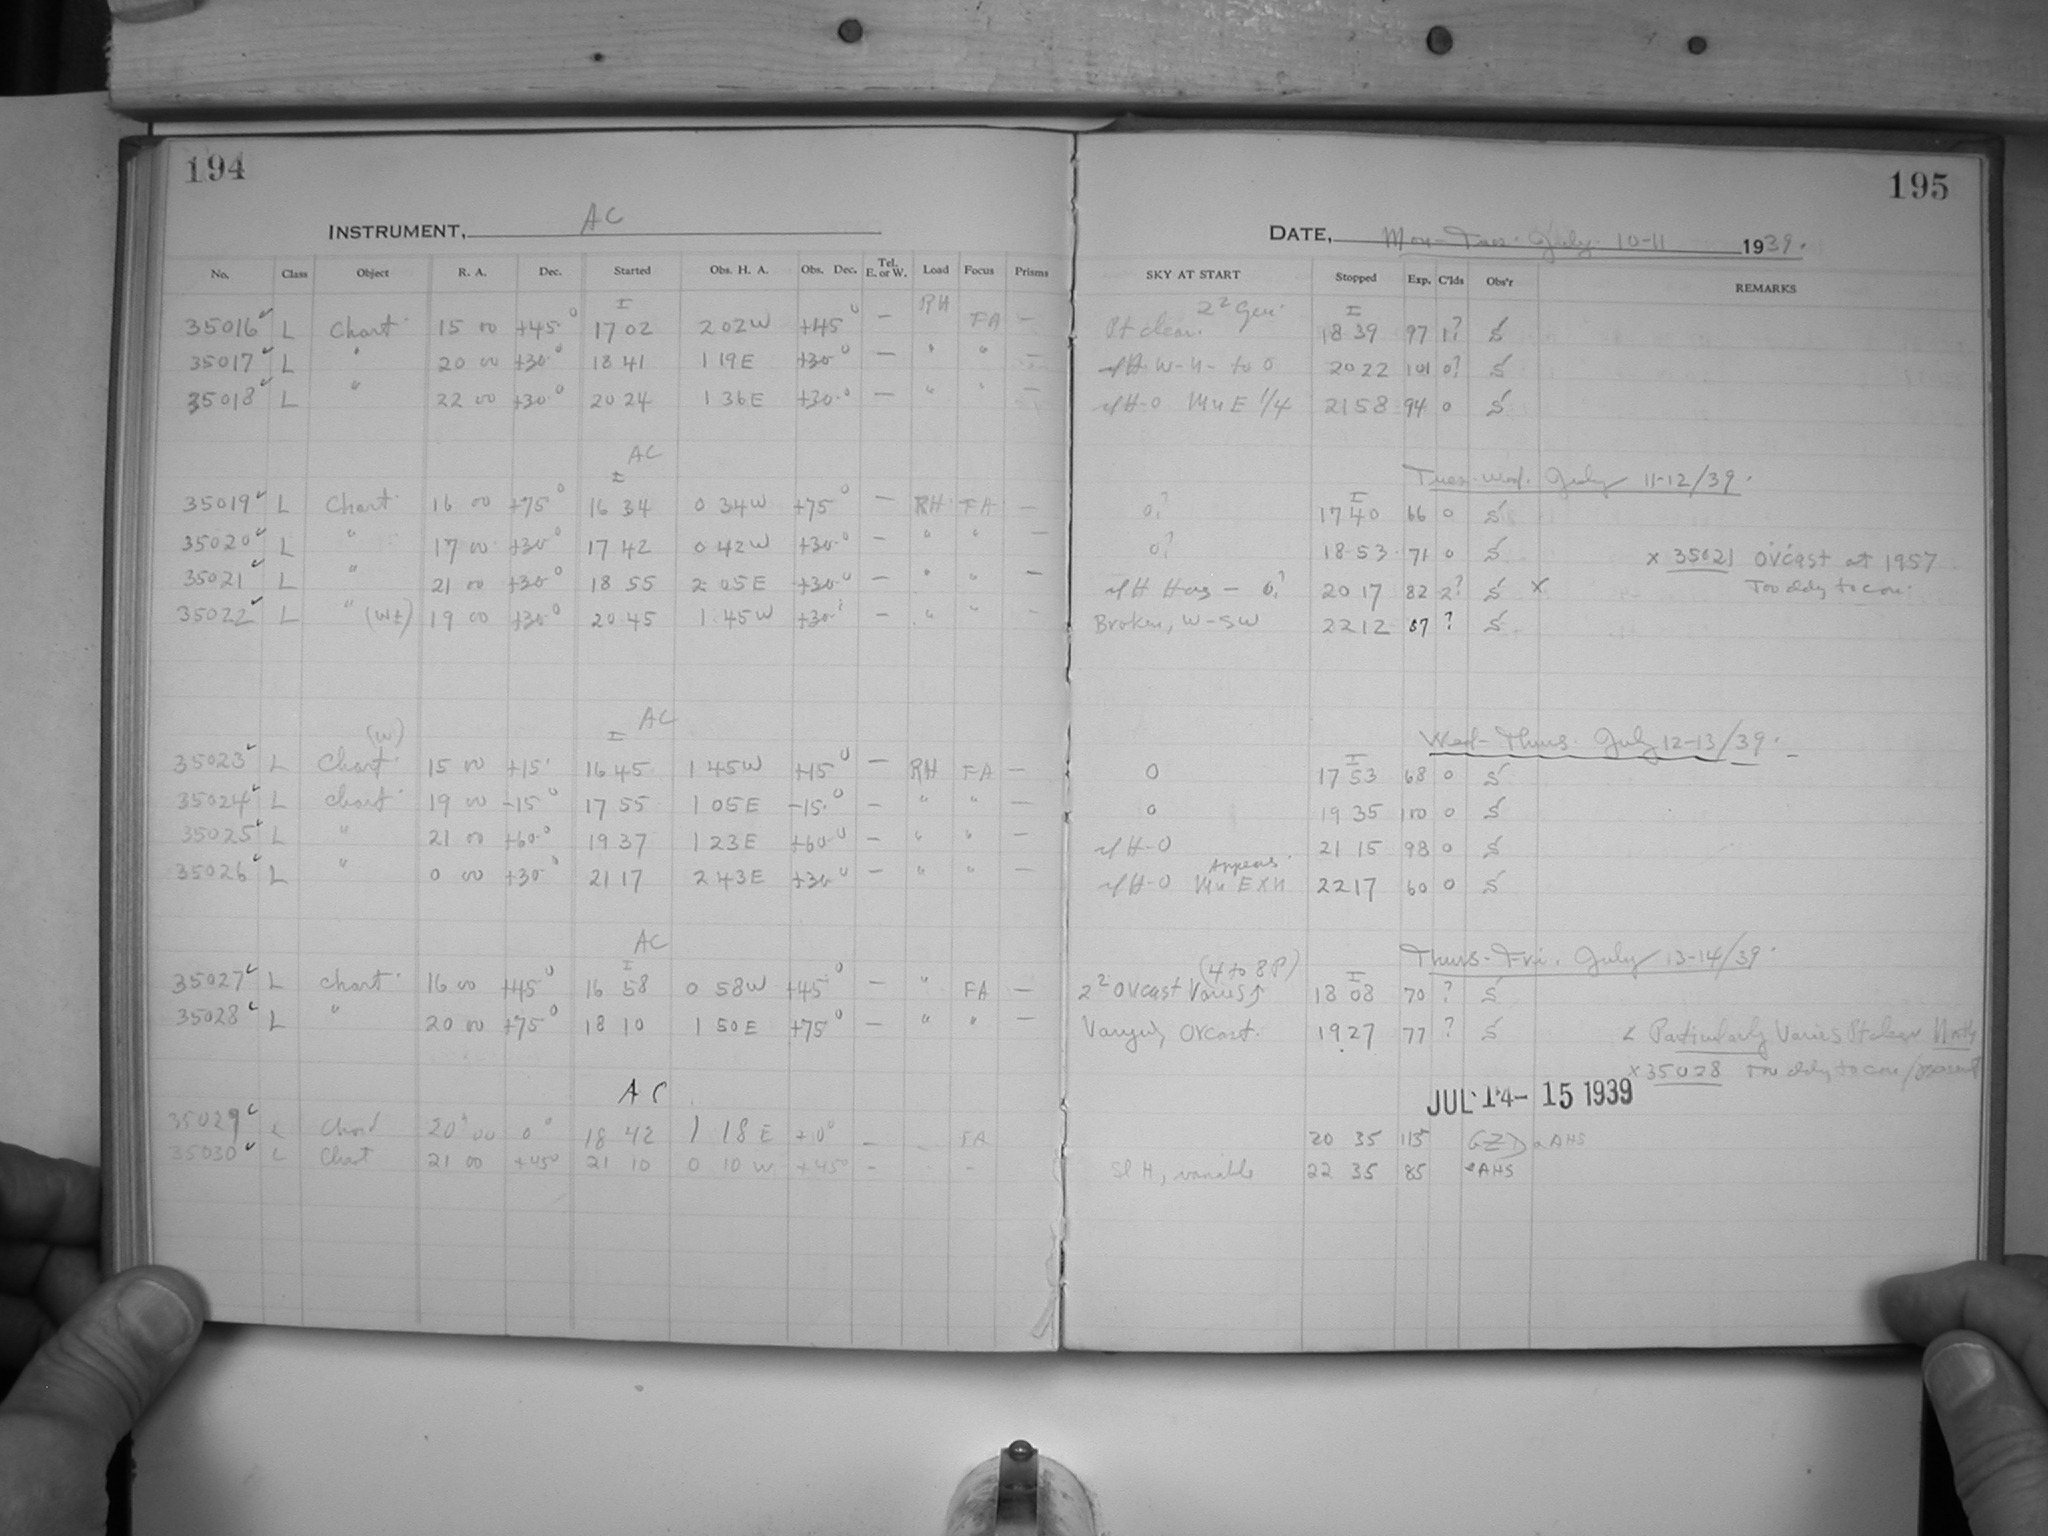 194
195
INSTRUMENT, AC
DATE, Mon-Tues. July 10-11 1939.
No. Class Object R. A. Dec. Started Obs. H. A. Obs. Dec. Tel. E. or W. Load Focus Prisms SKY AT START Stopped Exp. C'lds Obs'r REMARKS
35016 L Chart 15 00 +45° 17 02 2 02W +45° — RH FA — Pt clear. 2² Gen. 18 39 97 1? S
35017 L " 20 00 +30° 18 41 1 19E +30° — " " — W-N- to 0 20 22 101 0? S
35018 L " 22 00 +30° 20 24 1 36E +30° — " " — H-0 Mn E 1/4 21 58 94 0 S
AC Tues-Wed. July 11-12/39.
35019 L Chart 16 00 +75° 16 34 0 34W +75° — RH FA — 0? 17 40 66 0 S
35020 L " 17 00 +30° 17 42 0 42W +30° — " " — 0? 18 53 71 0 S x 35021 ovcast at 1957
35021 L " 21 00 +30° 18 55 2 05E +30° — " " — 0? 20 17 82 2? S x Too cldy to con.
35022 L " 19 00 +30° 20 45 1 45W +30° — " " Broken, W-SW 22 12 87 ? S
AC Wed-Thurs. July 12-13/39.
(W)
35023 L Chart 15 00 +15° 16 45 1 45W +15° — RH FA — 0 17 53 68 0 S
35024 L Chart 19 00 -15° 17 55 1 05E -15° — " " — 0 19 35 100 0 S
35025 L " 21 00 +60° 19 37 1 23E +60° — " " — H-0 21 15 98 0 S
35026 L " 0 00 +30° 21 17 2 43E +30° — " " — H-0 Mn E 22 17 60 0 S
AC Thurs-Fri. July 13-14/39.
(4 to 8 P)
35027 L Chart 16 00 +45° 16 58 0 58W +45° — " FA — 2² Ovcast Varies 18 08 70 ? S
35028 L " 20 00 +75° 18 10 1 50E +75° — " " — Varying Ovcast. 19 27 77 ? S Particularly Varies Pt clear
x 35028 Too cldy to con
AC JUL 14-15 1939
35029 L Chart 20 00 0° 18 42 1 18 E +0° — FA 20 35 115 AHS
35030 L Chart 21 00 +45° 21 10 0 10 W +45° — - - Sl H, variable 22 35 85 AHS